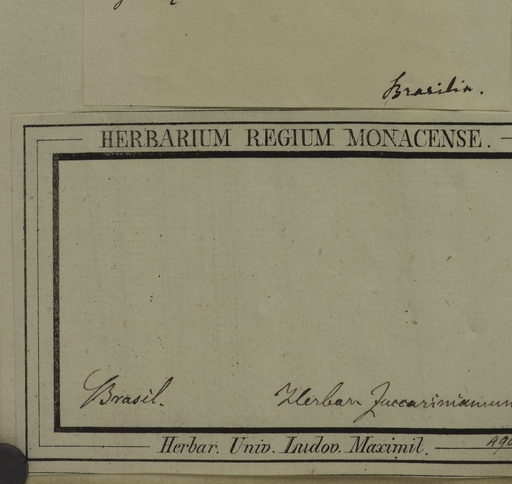 Brasilia.
HERBARIUM REGIUM MONACENSE.
Brasil. Herbar. Zuccarinianum
Herbar. Univ. Ludov. Maximil.